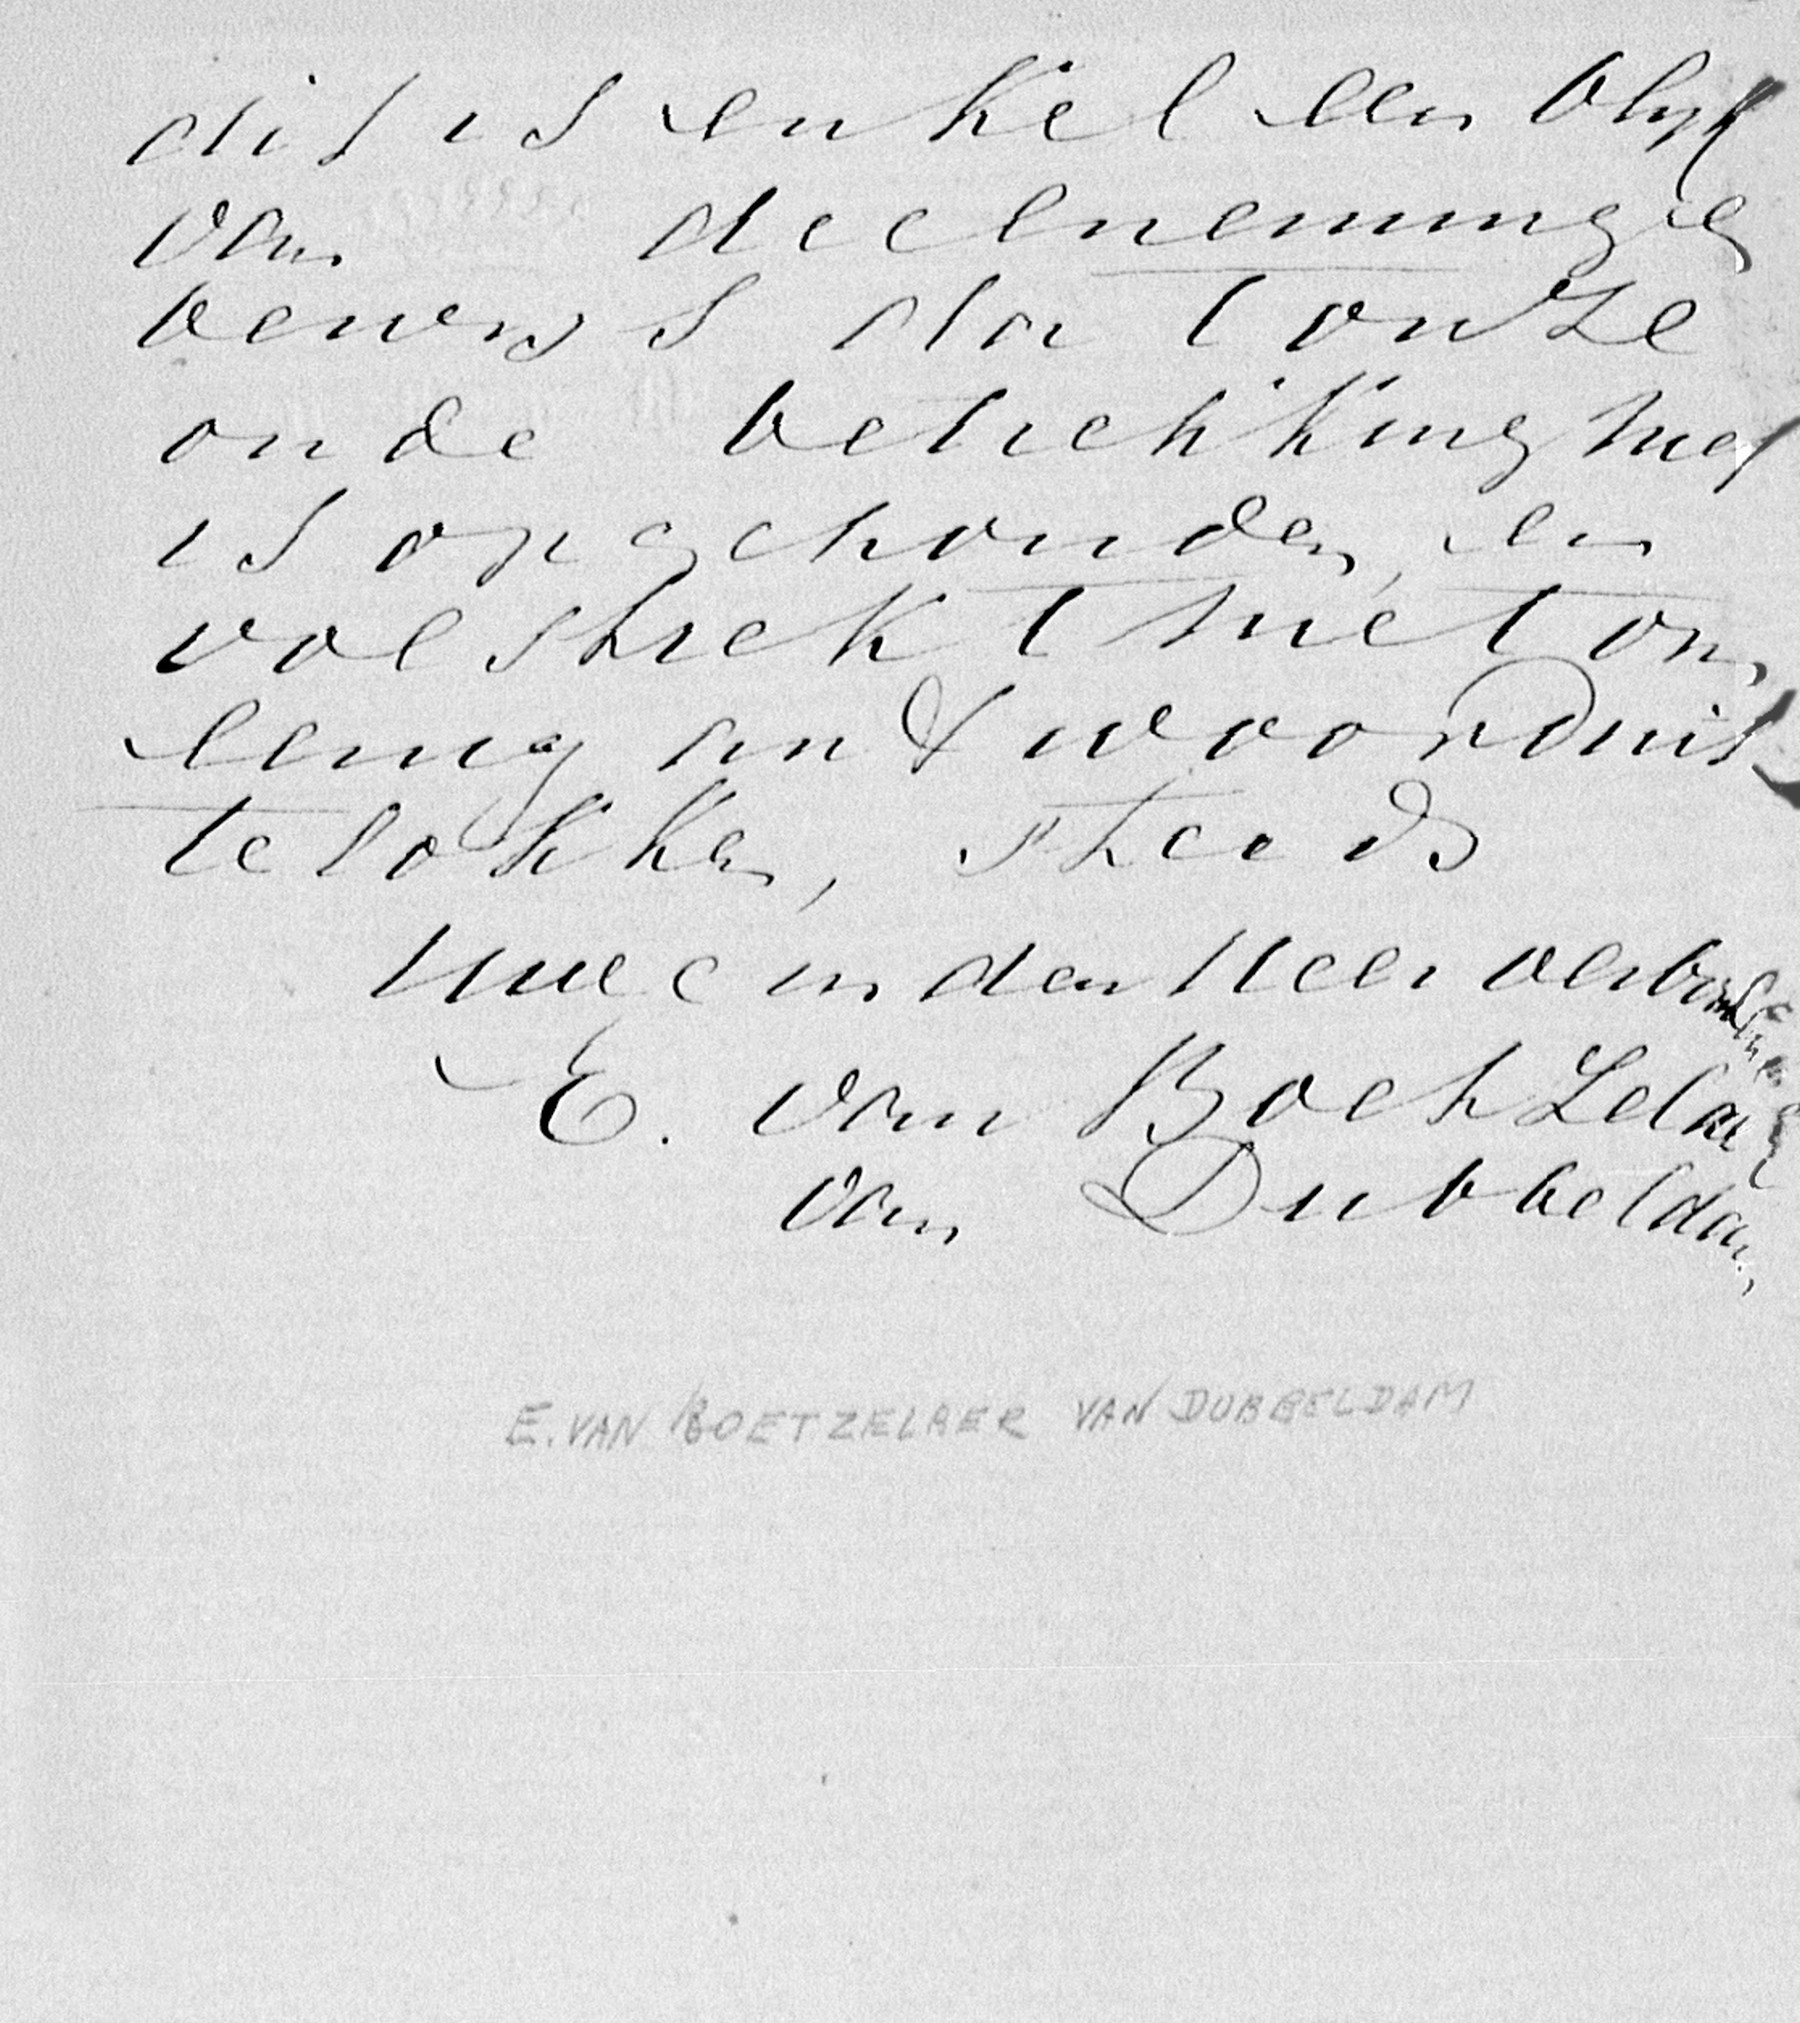 dit is enkel een blyk
van deelneming en
bewys dat onze
oude betrekking niet
is opgehouden, en
volstrekt niet om
eenig andwoord uit
te lokken, steeds
Uwe in den Heer verbondene
E. van Boetzelaer
van Dubbeldam
E. VAN BOETZELAER VAN DUBBELDAM